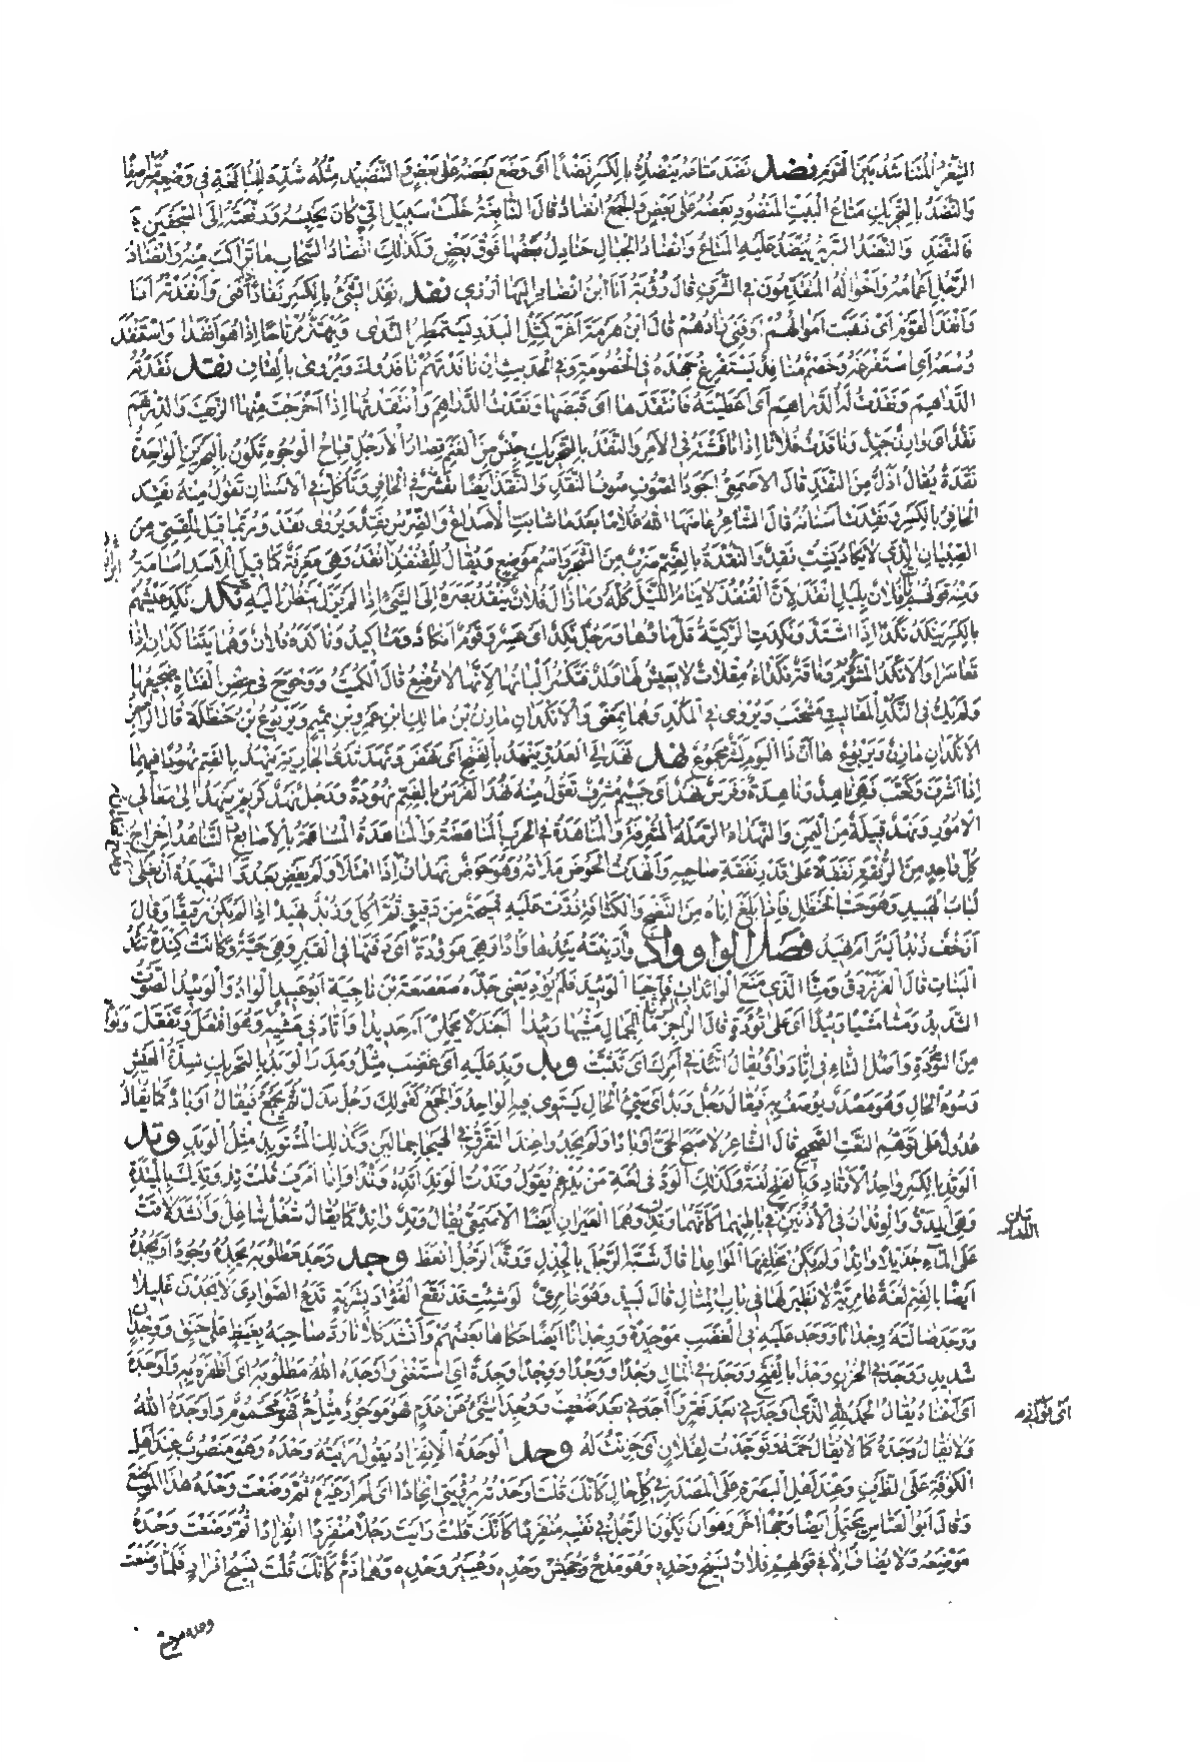 الشعر المتناشد بين القوم نضد نضد متاعه ينضده بالكسر نضدا أى وضع بعضه على بعض والتنضيد مثله شدد للمبالغة فى وضعه متراصفا
والنضد بالتحريك متاع البيت المنضود بعضه على بعض والجمع أنضاد قال النابغة خلت سبيل أتى كان يحبسه ورفعته إلى السجفين
فالنضد والنضد السرير ينضد عليه المتاع وأنضاد الجبال جنادل بعضها فوق بعض وكذلك أنضاد السحاب ما تراكب منه وأنضاد
الرجل أعمامه وأخواله المتقدمون فى الشرف قال رؤبة أنا ابن أنضاد إليها أرزى نفد نفد الشىء بالكسر نفادا فنى وأنفدته أنا
وأنفد القوم أى ذهبت أموالهم وفنى زادهم قال ابن هرمة أغر كمثل البدر يستمطر الندى ويهتز مرتاحا إذا هو أنفدا واستنفد
وسعه أى استفرغه وخصم منافد يستفرغ جهده فى الخصومة وفى الحديث إن نافدتهم نافدوك ويروى بالقاف نقد نقدته
الدراهم ونقدت له الدراهم أى أعطيته فانتقدها أى قبضها ونقدت الدراهم وانتقدتها إذا أخرجت منها الزيف والدرهم
نقد أى وازن جيد وناقدت فلانا إذا ناقشته فى الأمر والنقد بالتحريك جنس من الغنم قصار الأرجل قباح الوجوه تكون بالبحرين الواحدة
نقدة يقال أذل من النقد قال الأصمعى أجود الصوف صوف النقد والنقد أيضا تقشر فى الحافر وتأكل فى الأسنان تقول منه نقد
الحافر بالكسر ونقدت أسنانه قال الشاعر عاضها الله غلاما بعد ما شابت الأصداغ والضرس نقد ويروى نقد وربما قيل للقمىء من
الصبيان الذى لا يكاد يشب نقد والنقدة بالضم ضرب من الشجر واسم موضع ويقال للقنفذ أنقد وهى معرفة كما قيل للأسد أسامة
ومنه قولهم بات فلان بليل أنقد لأن القنفذ لا ينام الليل كله وما زال فلان ينقد بصره إلى الشىء إذا لم يزل ينظر إليه نكد نكد عيشهم
بالكسر ينكد نكدا إذا اشتد ونكدت الركية قل ماؤها ورجل نكد أى عسر وقوم أنكاد ومناكيد وناكده فلان وهما يتناكدان إذا
تعاسرا والأنكد المشؤم وناقة نكداء مقلات لا يعيش لها ولد فتكثر ألبانها لأنها لا ترضع قال الكميت ووحوح فى حضن الفتاة ضجيعها
ولم يك فى النكد المقاليت مشخب ويروى فى المكد وهما بمعنى والأنكدان مازن بن مالك ابن عمرو بن تميم ويربوع بن حنظلة قال الراجز
الأنكدان مازن ويربوع ها إن ذا اليوم لشر مجموع نهد نهد إلى العدو ينهد بالفتح أى نهض ونهد ثدى الجارية ينهد بالضم نهودا فيهما
إذا أشرف وكعب فهى ناهد وناهدة وفرس نهد أى جسيم مشرف تقول منه نهد الفرس بالضم نهودة ورجل نهد كريم ينهد إلى معالى
الأمور ونهد قبيلة من اليمن والنهداء الرملة المشرفة والمناهدة فى الحرب المناهضة والمناهدة المساهمة بالأصابع والتناهد إخراج
كل واحد من الرفقة نفقة على قدر نفقة صاحبه وأنهدت الحوض ملأته وهو حوض نهدان إذا امتلأ ولم يفض بعد والنهيدة أن يغلى
لباب الهبيد وهو حب الحنظل فإذا بلغ إناه من النضج والكثافة ذرت عليه قميحة من دقيق ثم أكل وزبد نهيد إذا لم يكن رقيقا وقال
أرخف زبد أيسر أم نهيد فصل الواو وأد وأد بنته يئدها وأدا وهى موؤدة أى دفنها فى القبر وهى حية وكانت كندة تئد
البنات قال الفرزدق ومنا الذى منع الوائدات فأحيا الوئيد فلم يؤد يعنى جده صعصعة بن ناجية أبو عبيد الوأد والوئيد الصوت
الشديد ومشى مشيا وئيدا أى على تؤدة قال الراجز ما للجمال مشيها وئيدا أجندلا يحملن أم حديدا واتأد فى مشيه وتوأد وهو افتعل وتفعل
من التؤدة وأصل التاء فى اتأد واو يقال اتئد فى أمرك أى تثبت وبد وبد عليه أى غضب مثل ومد والوبد بالتحريك شدة العيش
وسوء الحال وهو مصدر يوصف به فيقال رجل وبد أى سىء الحال يستوى فيه الواحد والجمع كقولك رجل عدل ثم يجمع فيقال أوباد كما يقال
عدول على توهم النعت الصحيح قال الشاعر لأصبح الحى أوبادا ولم يجدوا عند التفرق فى الهيجا جمالين وكذلك المستوبد مثل الوبد وتد
الوتد بالكسر واحد الأوتاد وبالفتح لغة وكذلك الود فى لغة من يدغم تقول وتدت الوتد أتده وتدا وإذا أمرت قلت تد وتدك بالميتدة
وهى المدق والوتدان فى الأذنين فى باطنهما كأنهما وتد وهما العيران أيضا الأصمعى يقال وتد واتد كما يقال شغل شاغل وأنشد لاقت
على الماء جذيلا واتدا ولم يكن يخلفها المواعدا قال شبه الرجل بالجذل وجد وجد مطلوبه يجده وجودا ويجده
أيضا بالضم لغة عامرية لا نظير لها فى باب المثال قال لبيد وهو عامرى لو شئت قد نقع الفؤاد بشربة تدع الصوادى لا يجدن غليلا
ووجد ضالته وجدانا ووجد عليه فى الغضب موجدة ووجدانا أيضا حكاها بعضهم وأنشد كلانا رد صاحبه بغيظ على حنق ووجدان
شديد ووجد فى الحزن وجدا بالفتح ووجد فى المال وجدا ووجدا ووجدا وجدة أى استغنى وأوجده الله مطلوبه أى أظفره به وأوجده
أى أغناه يقال الحمد لله الذى أوجدنى بعد فقر وآجدنى بعد ضعف ووجد الشىء عن عدم فهو موجود مثل حم فهو محموم وأوجده الله
ولا يقال وجده كما لا يقال حمه وتوجدت لفلان أى حزنت له وحد الوحدة الانفراد يقول رأيته وحده وهو منصوب عند أهل
الكوفة على الظرف وعند أهل البصرة على المصدر فى كل حال كأنك قلت أوحدته برؤيتى إيحادا أى لم أر غيره ثم وضعت وحده هذا الموضع
وقال أبو العباس يحتمل أيضا وجها آخر وهو أن يكون الرجل فى نفسه منفردا كأنك قلت رأيت رجلا منفردا انفرادا ثم وضعت وحده
موضعه ولا يضاف إلا فى قولهم فلان نسيج وحده وهو مدح وجحيش وحده وعيير وحده وهما ذم كأنك قلت نسيج إفراد فلما وضعت
وحده موضع